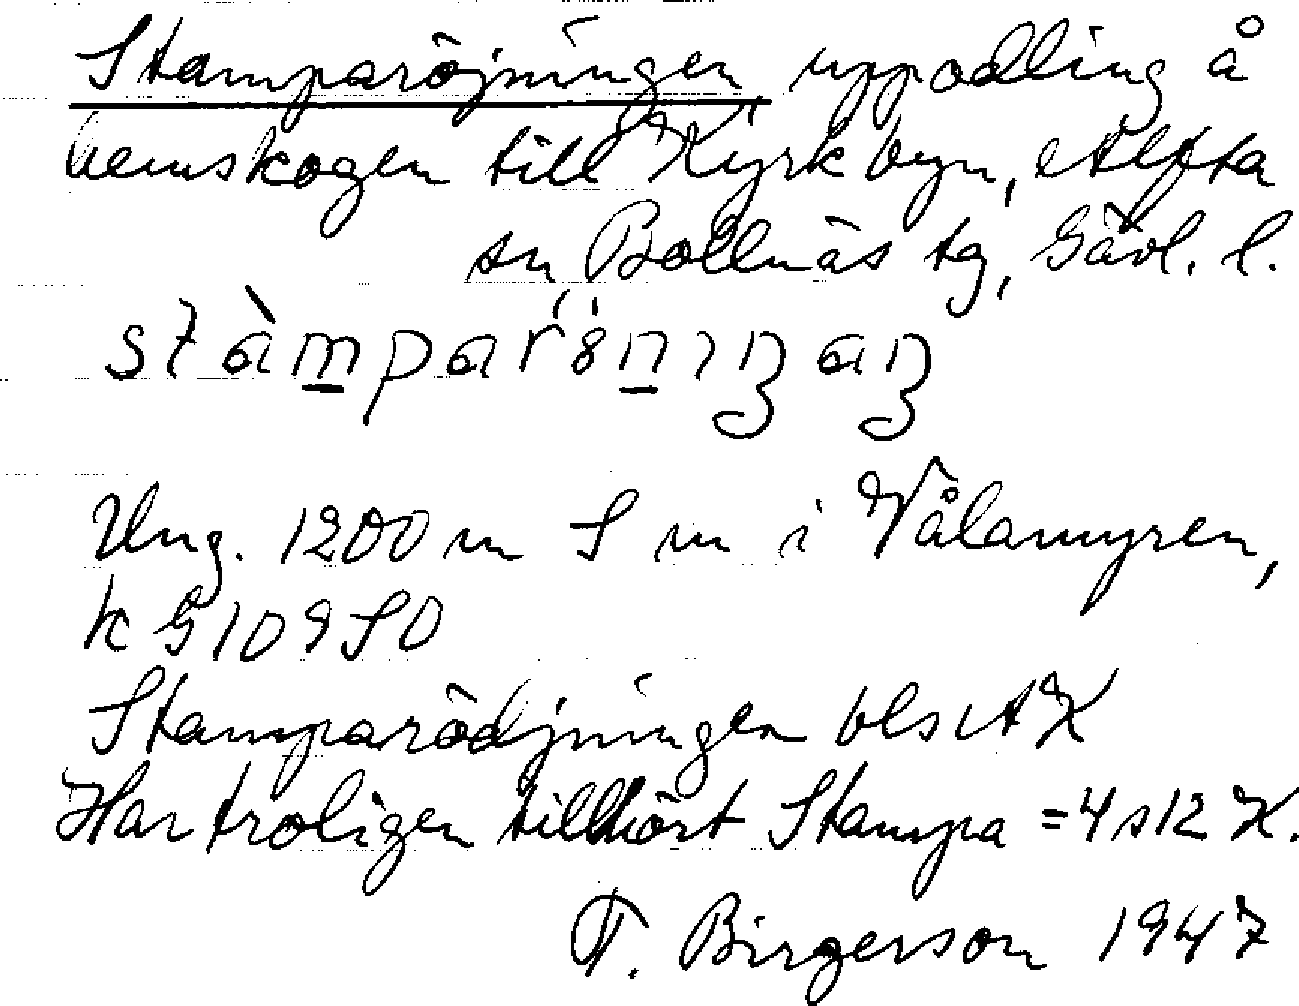 Stamparöjningen, uppodling å
hemskogen till Kyrkbyn, Alfta
sn, Bollnäs tg, Gävl. l.
stàmparönıŋaŋ
Ung. 1200 m S m i Vålamyren,
k G 109 SO
Stamparödjningen bls AK
Har troligen tillhört Stampa = 4 s 12 K.
T. Birgerson 1947